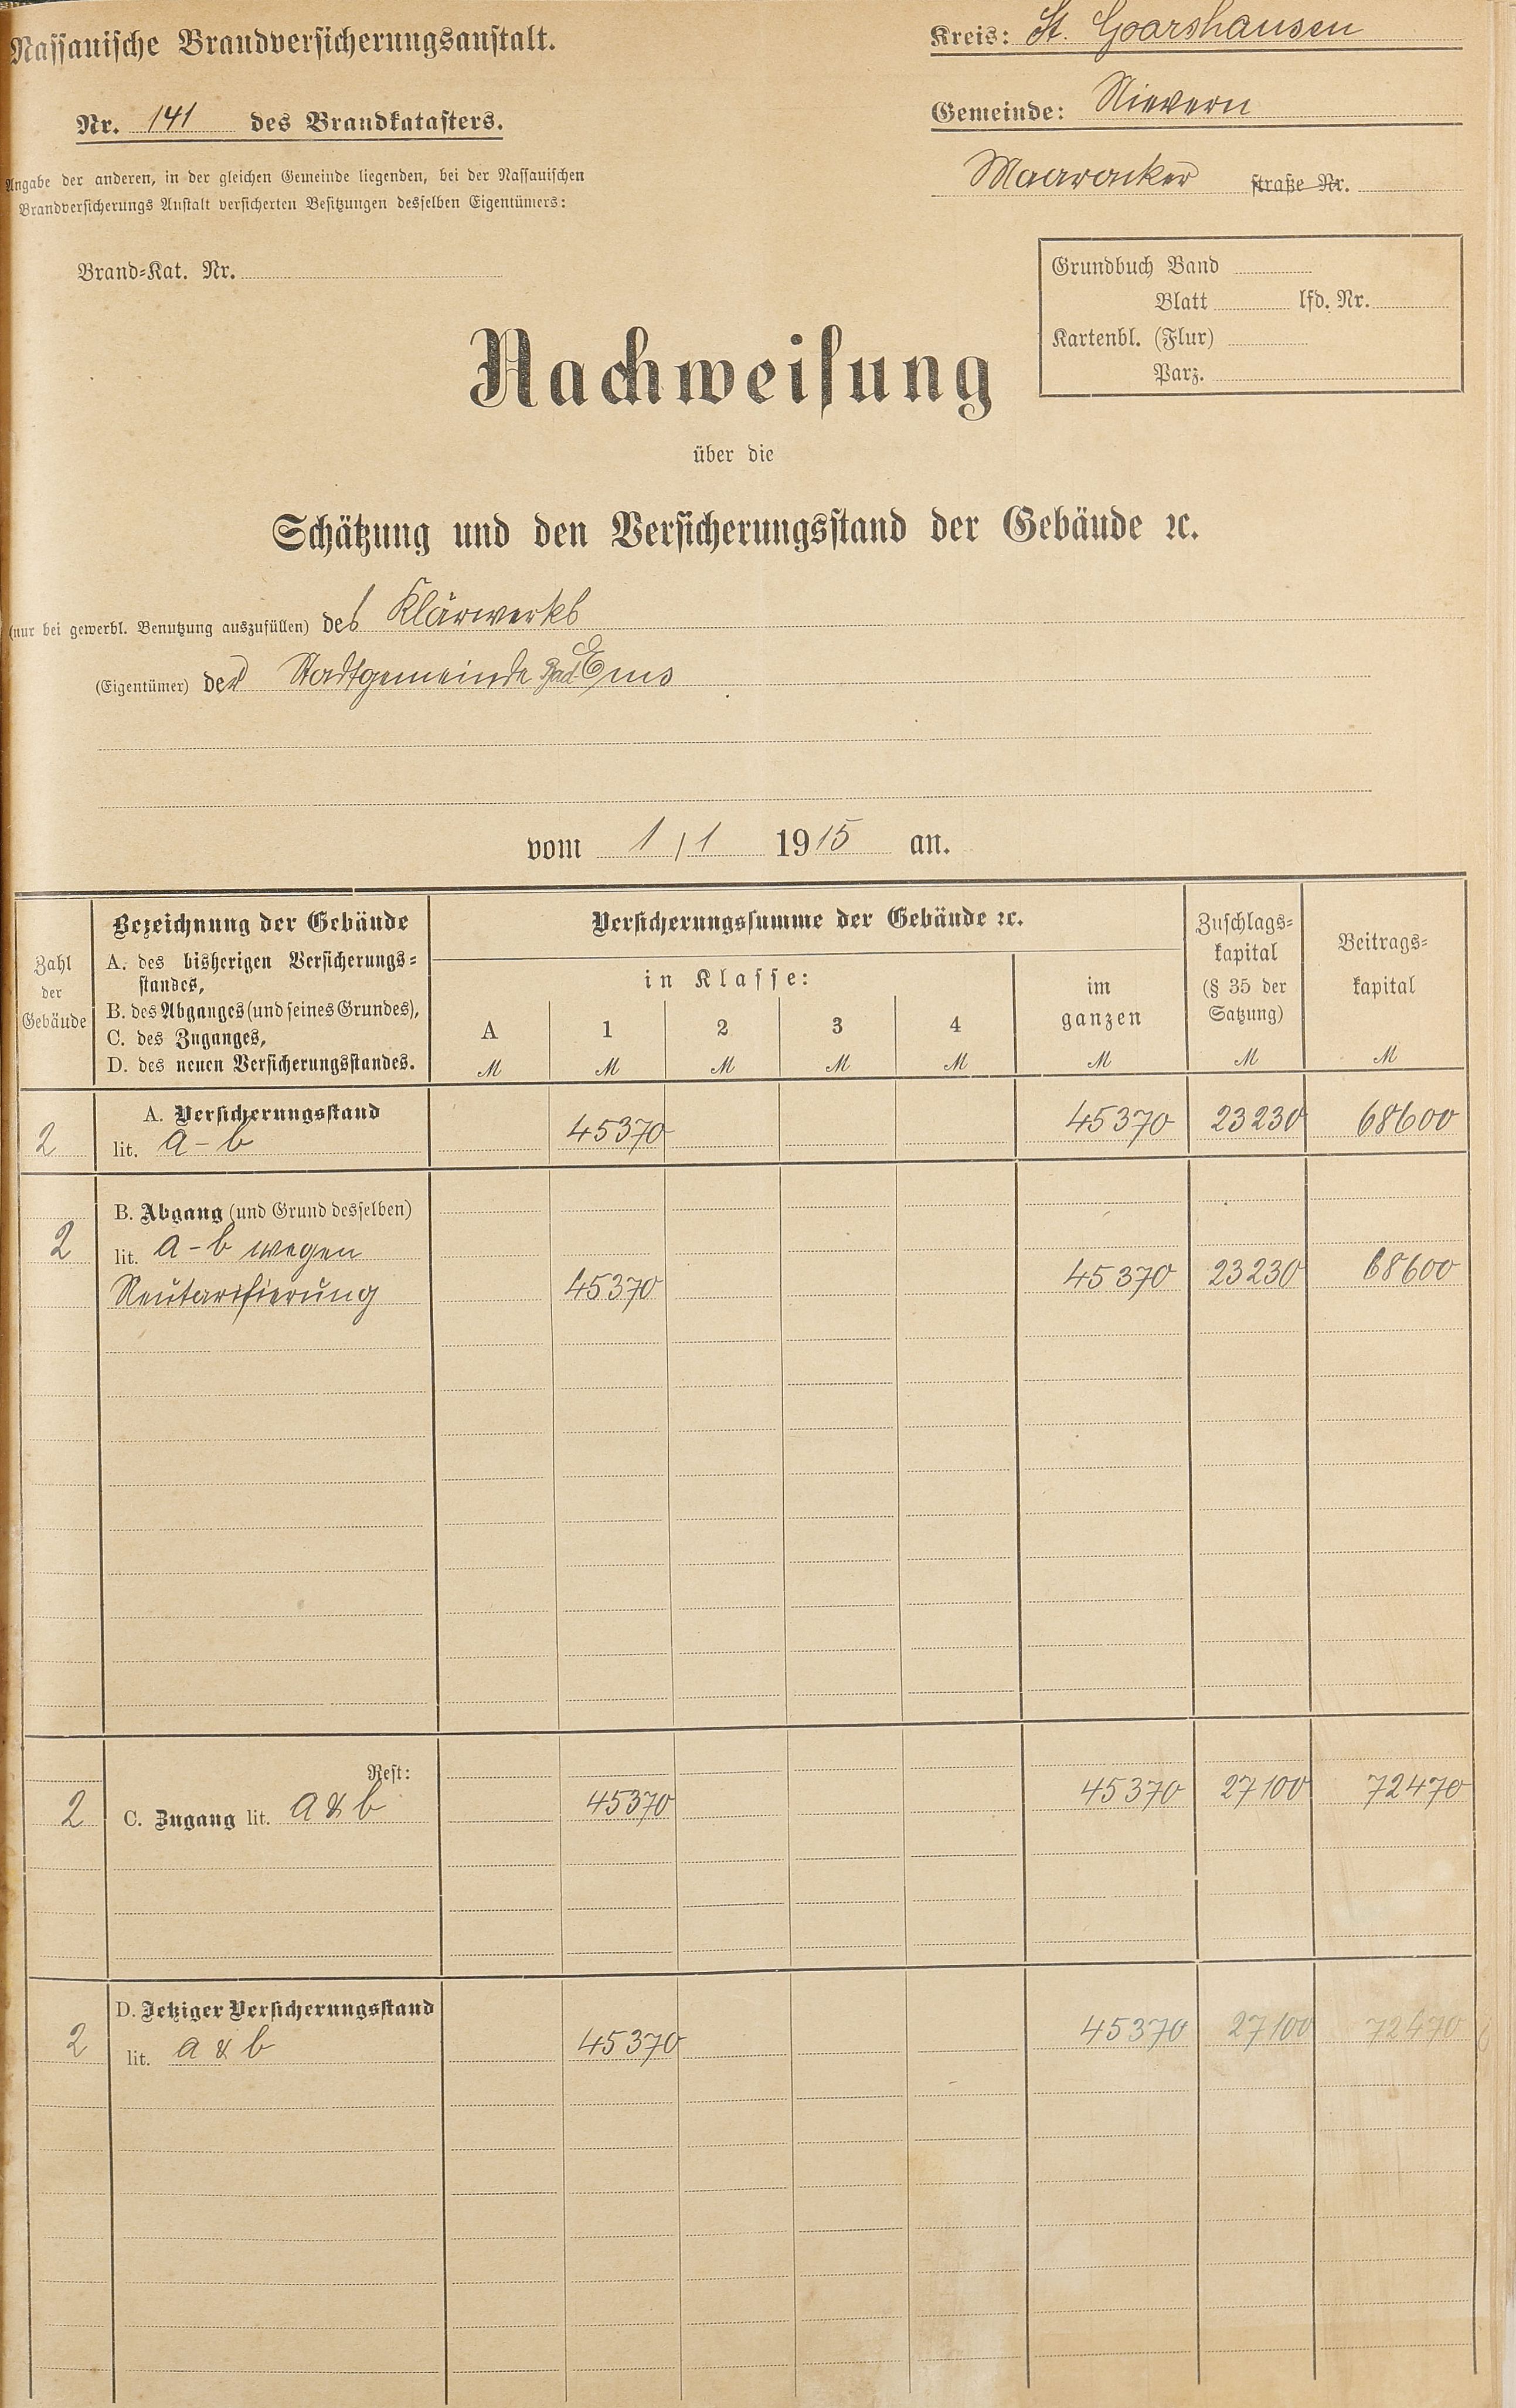 Nassauische Brandversicherungsanstalt.
Nr. 141 des Brandkatasters.
Angabe der anderen, in der gleichen Gemeinde liegenden, bei der Nassauischen
Brandversicherungs Anstalt versicherten Besitzungen desselben Eigentümers:
Brand-Kat. Nr.
Kreis: St. Goarshausen
Gemeinde: Nievern
Maaracker straße Nr.
Grundbuch Band
Blatt lfd. Nr.
Kartenbl. (Flur)
Parz.
Nachweisung
über die
Schätzung und den Versicherungsstand der Gebäude ꝛc.
(nur bei gewerbl. Benutzung auszufüllen) des Klärwerks
(Eigentümer) der Stadtgemeinde Bad Ems
vom 1/1 1915 an.
Zahl der Gebäude
Bezeichnung der Gebäude
A. des bisherigen Versicherungs-
standes,
B. des Abganges (und seines Grundes),
C. des Zuganges,
D. des neuen Versicherungsstandes.
Versicherungssumme der Gebäude ꝛc.
in Klasse:
A 1 2 3 4
M M M M M
im
ganzen
M
Zuschlags-
kapital
(§ 35 der
Satzung)
M
Beitrags-
kapital
M
A. Versicherungsstand
2 lit. a - b 45370 45370 23230 68600
B. Abgang (und Grund desselben)
2 lit. a - b wegen
Neutarifierung 45370 45370 23230 68600
Rest:
2 C. Zugang lit. a & b 45370 45370 27100 72470
D. Jetziger Versicherungsstand
2 lit. a & b 45370 45370 27100 72470